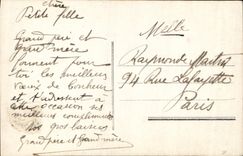 Chère
Petite fille
Grand père et
Grand mère
forment pour
toi les meilleurs
vœux de bonheur
et t'adressent à
occasion ses
meilleurs compliments
Nos gros baisers
Grand père et Grand mère
Melle
Raymonde
94 Rue Lafayette
Paris